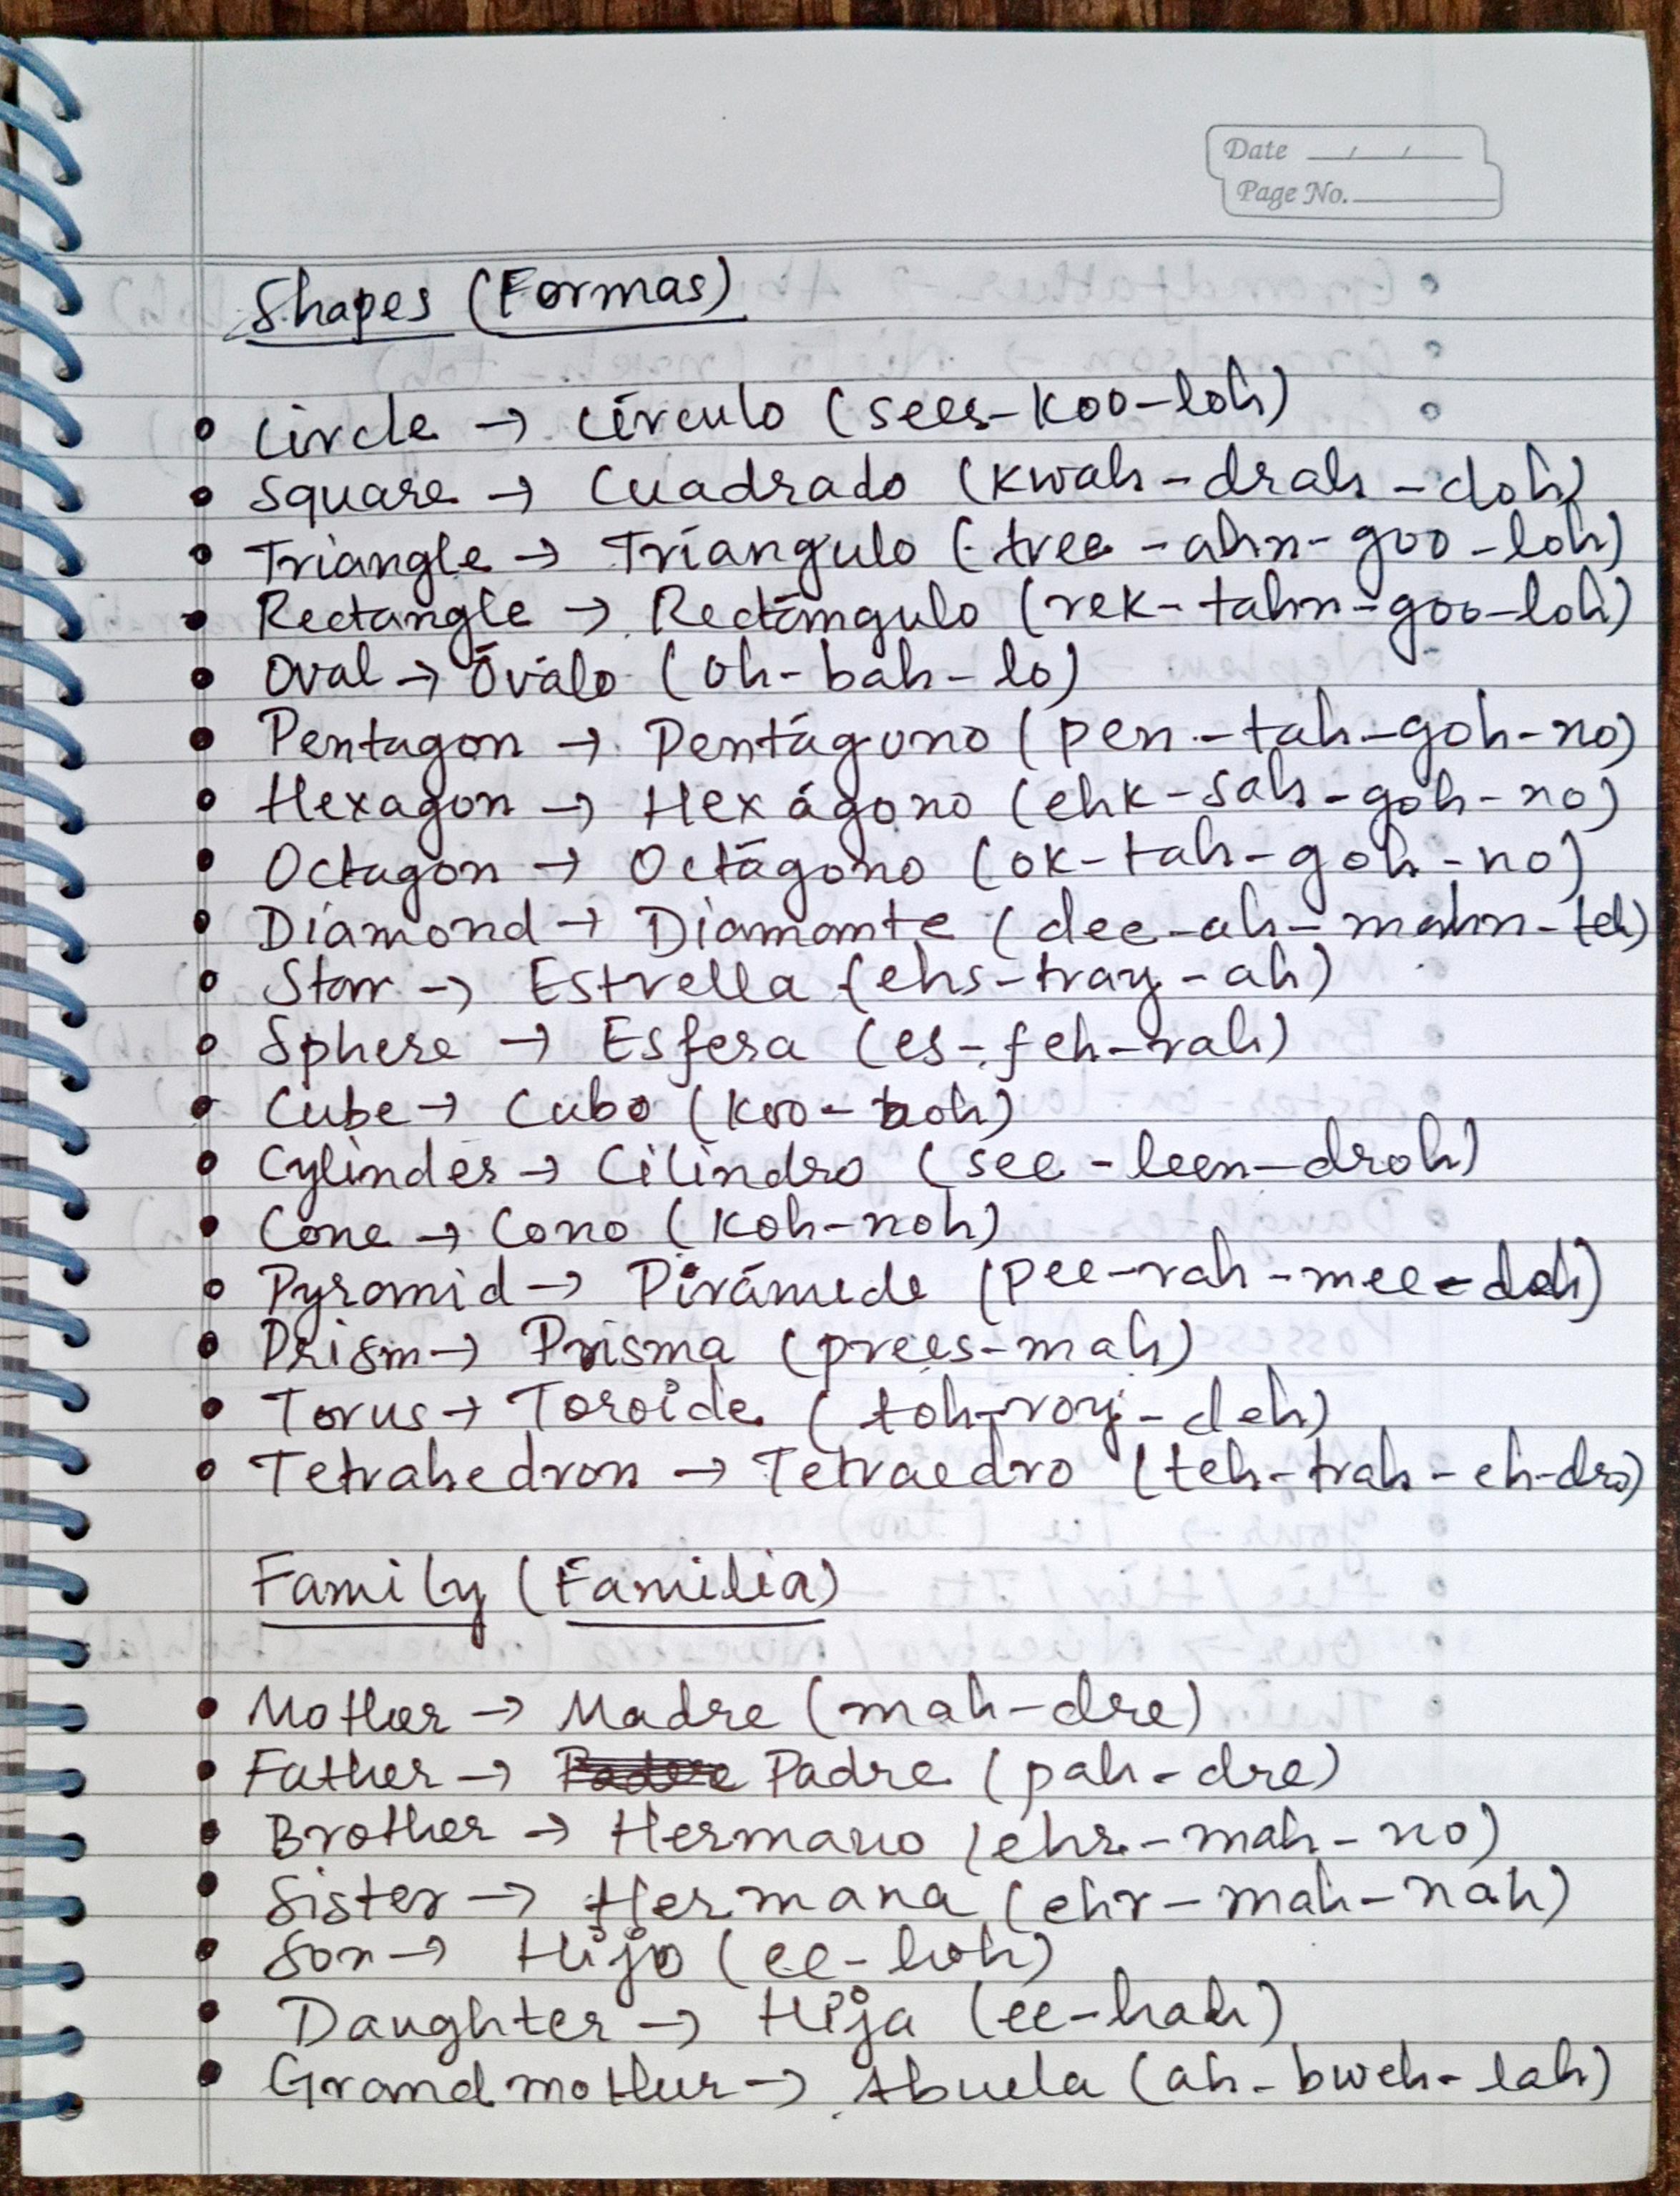 Date __/__/__
Page No.
Shapes (Formas)
• Circle → Círculo (sees-koo-loh)
• Square → Cuadrado (kwah-drah-doh)
• Triangle → Tríangulo (tree-ahn-goo-loh)
• Rectangle → Rectángulo (rek-tahn-goo-loh)
• Oval → Óvalo (oh-bah-lo)
• Pentagon → Pentágono (pen-tah-goh-no)
• Hexagon → Hexágono (ehk-sah-goh-no)
• Octagon → Octágono (ok-tah-goh-no)
• Diamond → Diamante (dee-ah-mahn-teh)
• Star → Estrella (ehs-tray-ah)
• Sphere → Esfera (es-feh-rah)
• Cube → Cubo (koo-boh)
• Cylinder → Cilindro (see-leen-droh)
• Cone → Cono (koh-noh)
• Pyramid → Pirámide (pee-rah-mee-deh)
• Prism → Prisma (prees-mah)
• Torus → Toroide (toh-roy-deh)
• Tetrahedron → Tetraedro (teh-trah-eh-dro)
Family (Familia)
• Mother → Madre (mah-dre)
• Father → Padre (pah-dre)
• Brother → Hermano (ehr-mah-no)
• Sister → Hermana (ehr-mah-nah)
• Son → Hijo (ee-hoh)
• Daughter → Hija (ee-hah)
• Grandmother → Abuela (ah-bweh-lah)